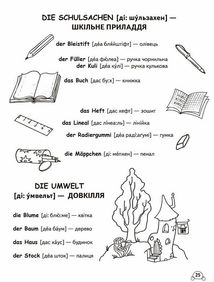 DIE SCHULSACHEN [ді: шу́льзахен] —
ШКІЛЬНЕ ПРИЛАДДЯ
der Bleistift [де́а бляйштіфт] — олівець
der Füller [де́а фю́леа] — ручка чорнильна
der Kuli [де́а ку́лі] — ручка кулькова
das Buch [дас бу:х] — книжка
das Heft [дас хефт] — зошит
das Lineal [дас ліне́а:ль] — лінійка
der Radiergummi [де́а раді́агумі] — гумка
die Mäppchen [ді: ме́пхен] — пенал
DIE UMWELT
[ді: у́мвельт] — ДОВКІЛЛЯ
die Blume [ді: блю́:ме] — квітка
der Baum [де́а ба́ум] — дерево
das Haus [дас ха́ус] — будинок
der Stock [де́а шток] — палиця
25